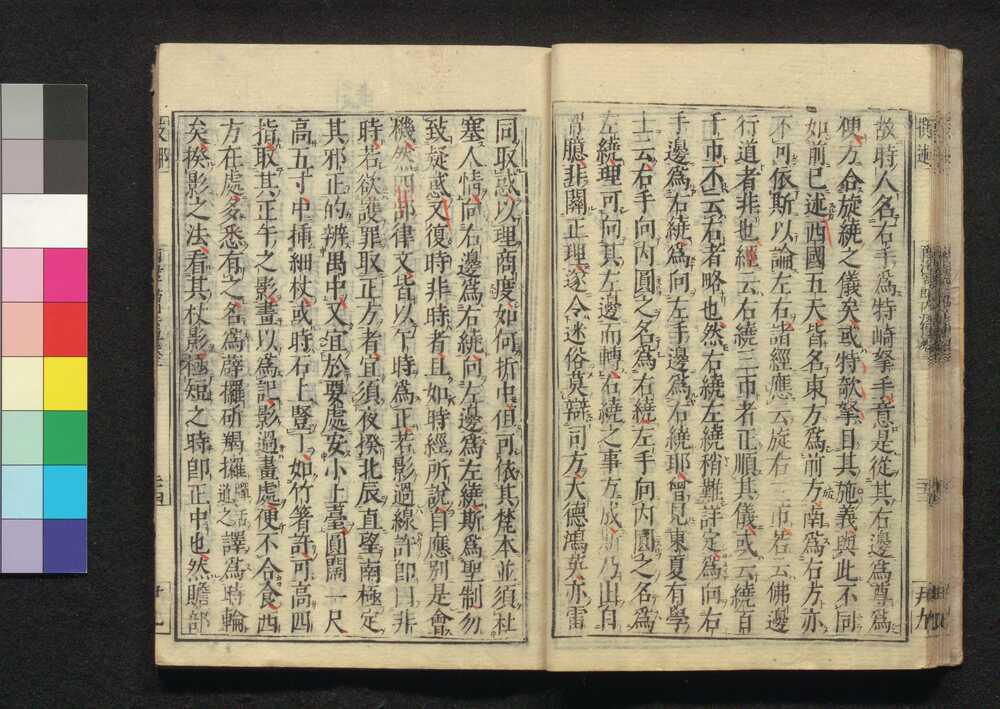 故時人名右手爲特崎拏手意是從其右邊爲尊爲
便方合旋繞之儀矣或特欹拏目其施義與此不同
如前已述西國五天皆名東方爲前方南爲右方亦
不可依斯以論左右諸經應云旋右三帀若云佛邊
行道者非也經云右繞三帀者正順其儀或云繞百
千帀不云右者略也然右繞左繞稍難詳定爲向右
手邊爲右繞爲向左手邊爲右繞耶曾見東夏有學
士云右手向內圓之名爲右繞左手向內圓之名爲
左繞理可向其左邊而轉右繞之事方成斯乃出自
胷臆非關正理遂令迷俗莫辯司方大德鴻英亦雷
同取惑以理商度如何折中但可依其梵本並須杜
塞人情向右邊爲右繞向左邊爲左繞斯爲聖制勿
致疑惑又復時非時者且如時經所說自應別是會
機然四部律文皆以午時爲正若影過線許卽曰非
時若欲護罪取正方者宜須夜揆北辰直望南極定
其邪正的辨禺中又宜於要處安小土臺圓闊一尺
高五寸中插細杖或時石上豎丁如竹箸許可高四
指取其正午之影畫以爲記影過畫處便不合食西
方在處多悉有之名爲薜攞斫羯攞彈舌道之譯爲時輪
矣揆影之法看其杖影極短之時卽正中也然贍部